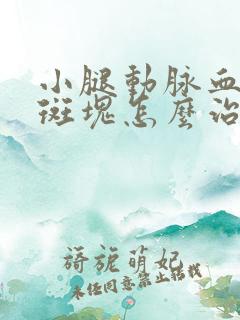 小腿動脉血
斑塊怎麼治
旖旎萌妃
未经同意禁止转载